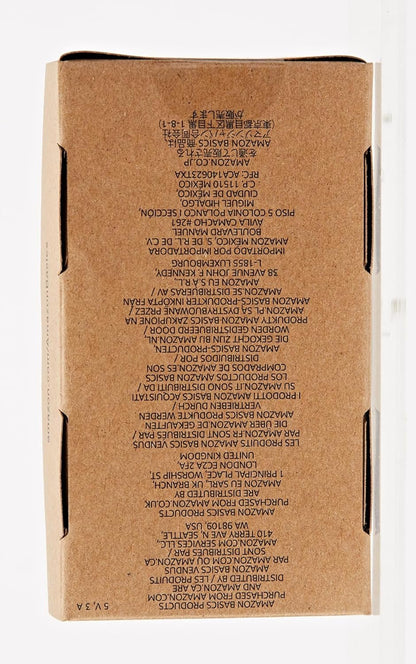 5 V, 3 A
AMAZON BASICS PRODUCTS
PURCHASED FROM AMAZON.COM
AND AMAZON.CA ARE
DISTRIBUTED BY / LES PRODUITS
AMAZON BASICS VENDUS
PAR AMAZON.COM OU AMAZON.CA
SONT DISTRIBUÉS PAR /
AMAZON.COM SERVICES LLC,
410 TERRY AVE. N, SEATTLE,
WA 98109, USA
AMAZON BASICS PRODUCTS
PURCHASED FROM AMAZON.CO.UK
ARE DISTRIBUTED BY
AMAZON EU SARL, UK BRANCH,
1 PRINCIPAL PLACE, WORSHIP ST,
LONDON EC2A 2FA,
UNITED KINGDOM
LES PRODUITS AMAZON BASICS VENDUS
PAR AMAZON.FR SONT DISTRIBUÉS PAR /
DIE ÜBER AMAZON.DE GEKAUFTEN
AMAZON BASICS PRODUKTE WERDEN
VERTRIEBEN DURCH /
I PRODOTTI AMAZON BASICS ACQUISTATI
SU AMAZON.IT SONO DISTRIBUITI DA /
LOS PRODUCTOS AMAZON BASICS
COMPRADOS EN AMAZON.ES SON
DISTRIBUIDOS POR /
AMAZON BASICS-PRODUCTEN
DIE GEKOCHT ZIJN BIJ AMAZON.NL
WORDEN GEDISTRIBUEERD DOOR /
PRODUKTY AMAZON BASICS ZAKUPIONE NA
AMAZON.PL SĄ DYSTRYBUOWANE PRZEZ /
AMAZON BASICS-PRODUKTER INKÖPTA FRÅN
AMAZON.SE DISTRIBUERAS AV /
AMAZON EU S.A R.L.,
38 AVENUE JOHN F. KENNEDY,
L-1855 LUXEMBOURG
IMPORTADO POR IMPORTADORA
AMAZON MÉXICO, S. DE R.L. DE C.V.
BOULEVARD MANUEL
ÁVILA CAMACHO #261
PISO 5 COLONIA POLANCO I SECCIÓN,
MIGUEL HIDALGO,
CIUDAD DE MÉXICO
C.P. 11510 MÉXICO
RFC: ACA140623TXA
AMAZON.CO.JP
を通して販売される
AMAZON BASICS 商品は
アマゾンジャパン合同会社
(東京都目黒区下目黒 1-8-1)
が販売します
amazon.com/AmazonBasics